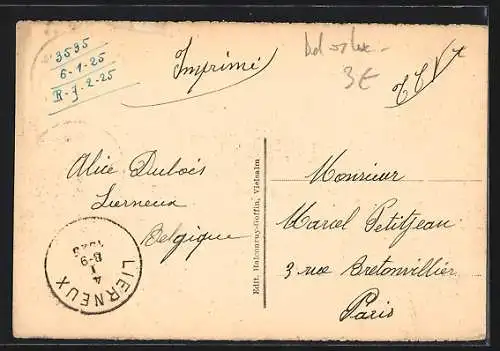 N° 3535
6-1-25
R-7-2-25
Imprimé
3€
Alice Dubois
Lierneux
Belgique
LIERNEUX
4
I
8-9
1925
Edit. Halconruy-Goffin, Vielsalm
Monsieur
Marcel Petitjean
3 rue Bretonvillier
Paris